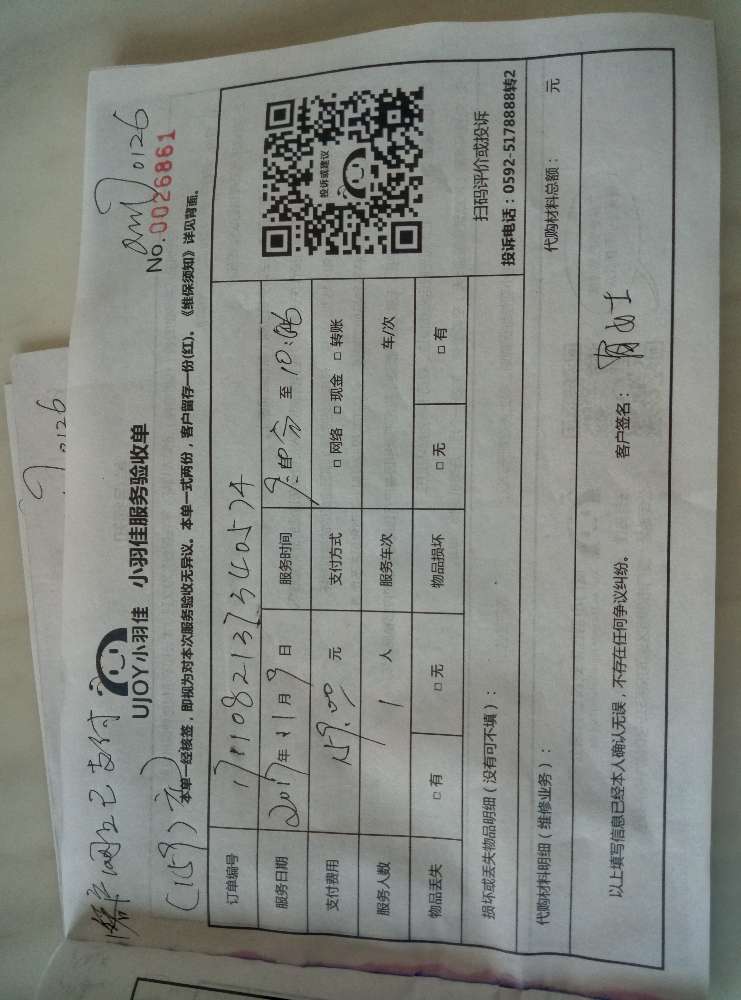 网上已支付
(159)元
0126
0126
No.0026861
UJOY小羽佳 小羽佳服务验收单
本单一经核签，即视为对本次服务验收无异议。本单一式两份，客户留存一份(红)。《维保须知》详见背面。
订单编号
服务日期 2017年11月9日 服务时间 至 10:06
支付费用 159.00 元 支付方式 □网络 □现金 □转账
服务人数 1 人 服务车次 车/次
物品丢失 □有 □无 物品损坏 □无 □有
投诉或建议
扫码评价或投诉
投诉电话：0592-5178888转2
损坏或丢失物品明细（没有可不填）：
代购材料明细（维修业务）： 代购材料总额： 元
以上填写信息已经本人确认无误，不存在任何争议纠纷。 客户签名： 女士